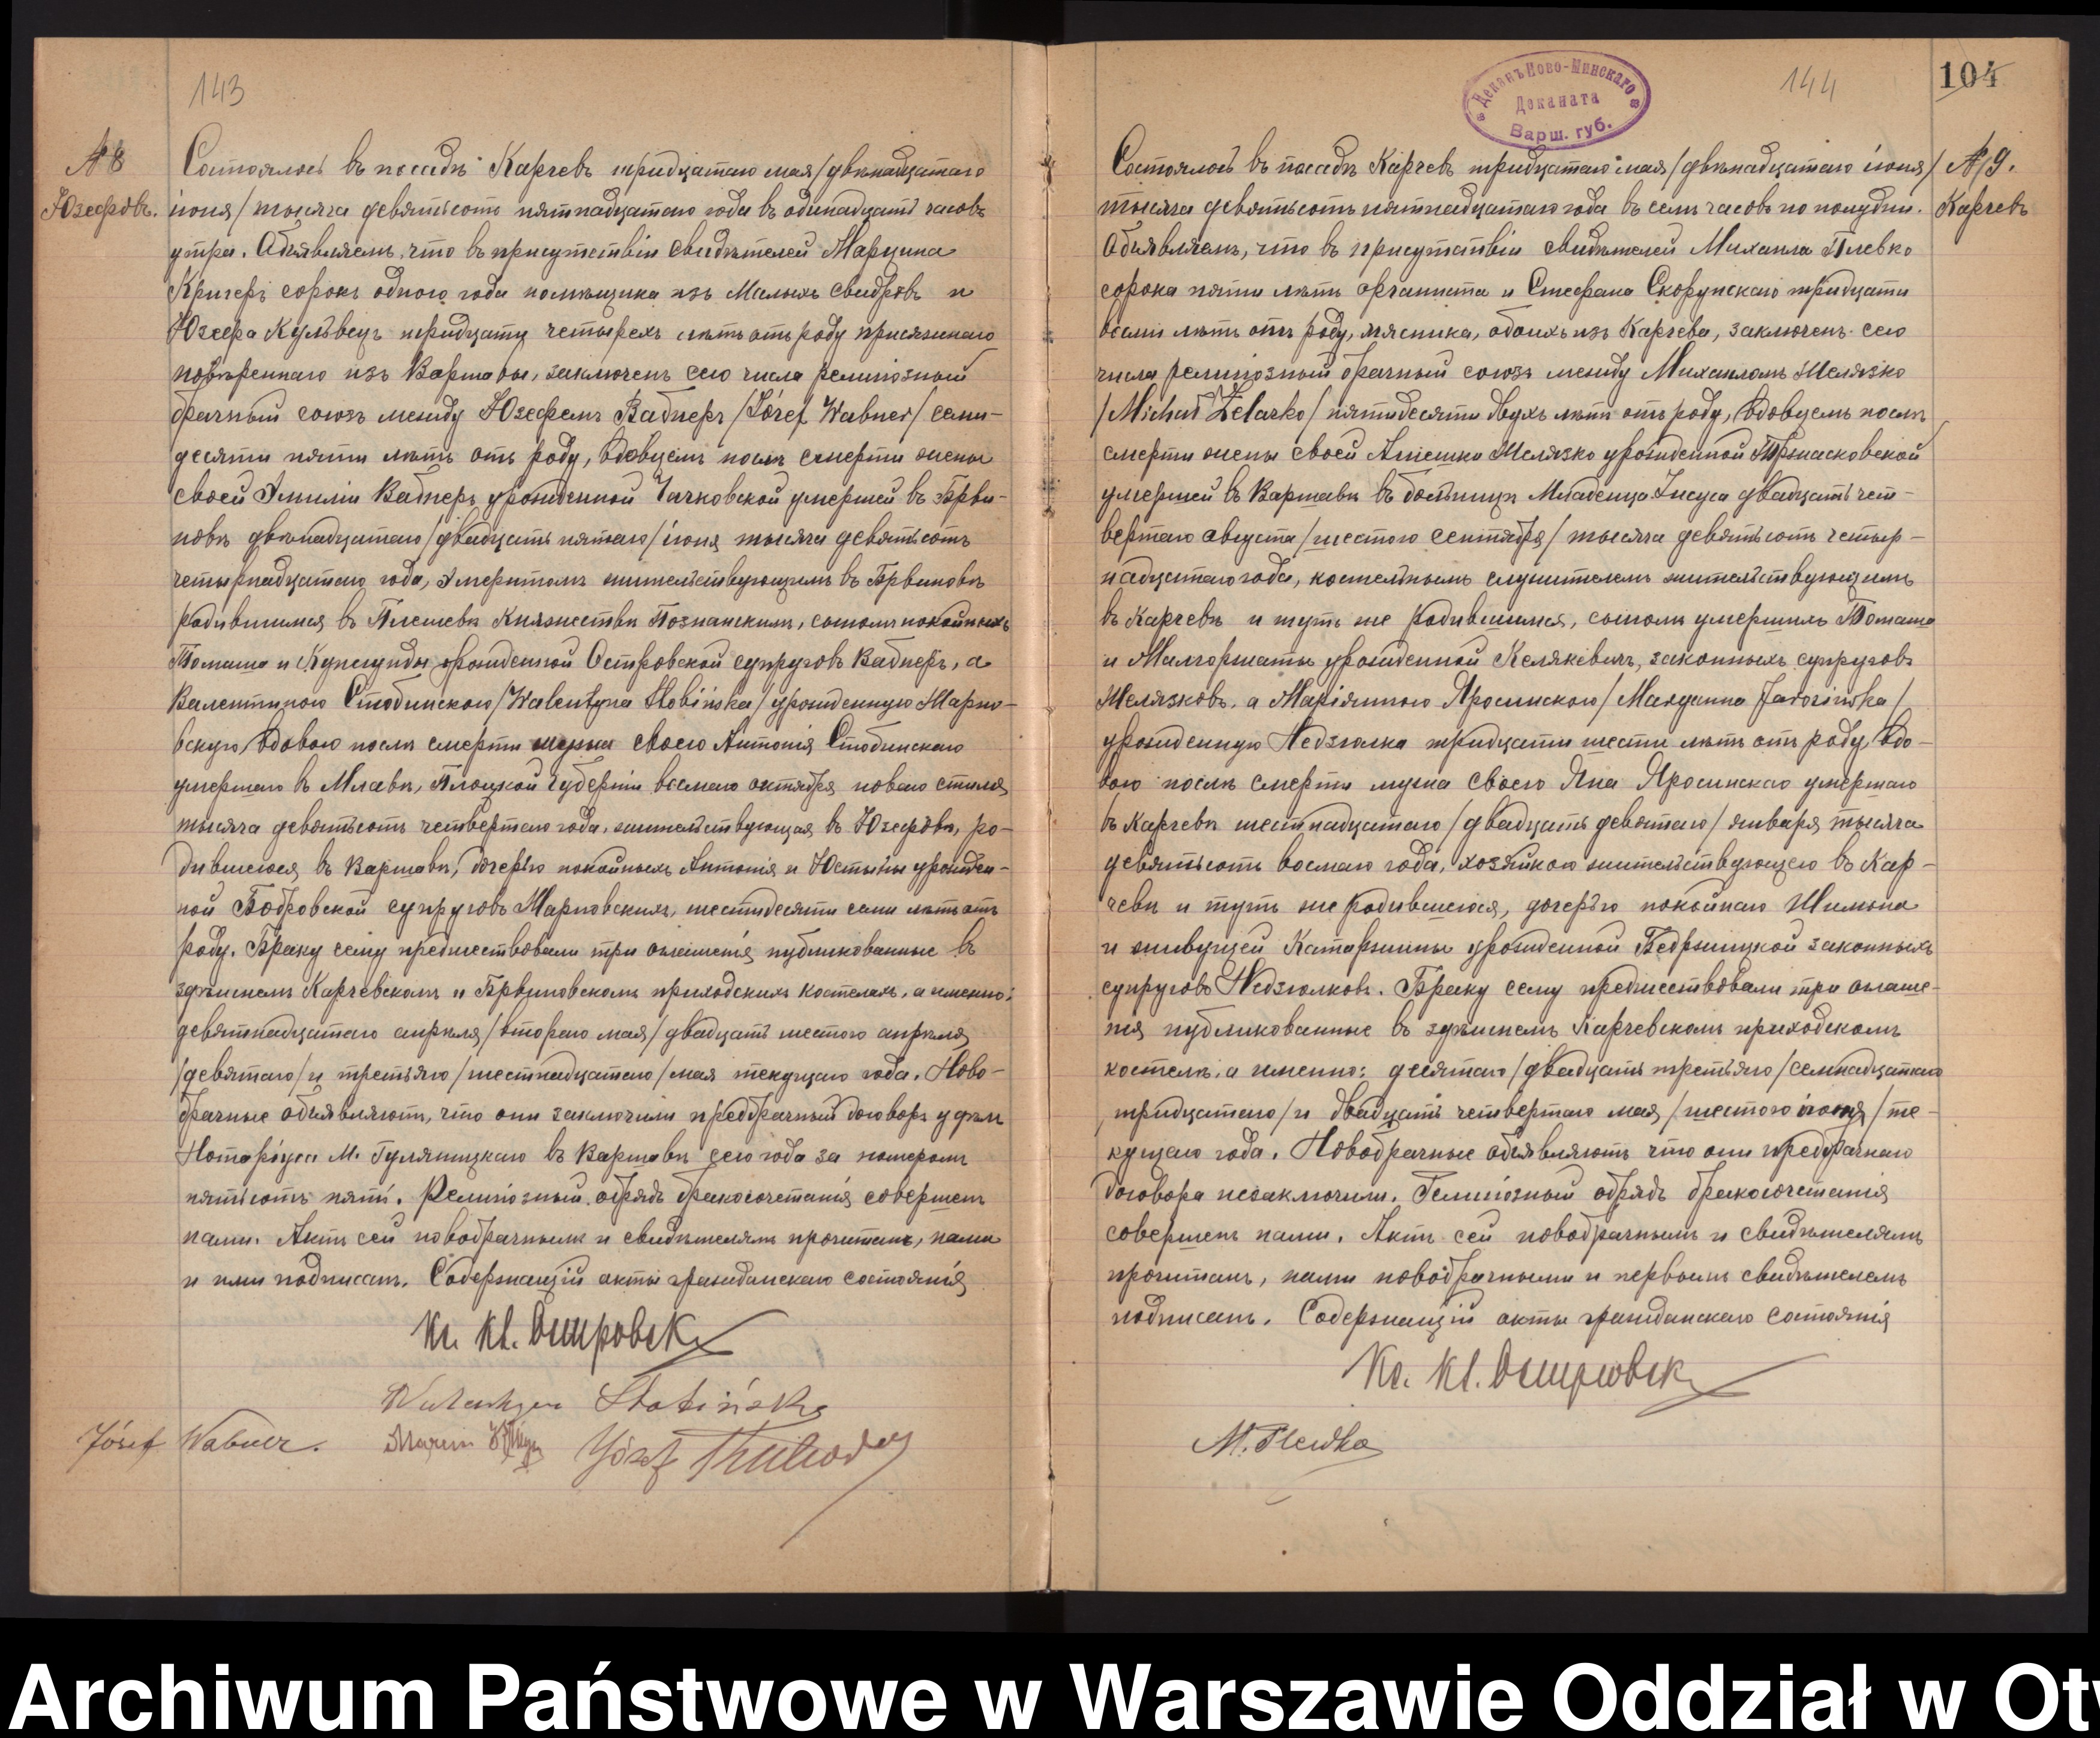 143
№ 8
Юзефовъ.
Состоялось въ посадѣ Карчевъ тридцатаго мая /двѣнадцатаго
іюня/ тысяча девятьсотъ пятнадцатаго года въ одинадцать часовъ
утра. Объявляемъ, что въ присутствіи свидѣтелей Марцина
Кригеръ сорокъ одного года помѣщика изъ Малыхъ Свидровъ и
Юзефа Кульвецъ тридцати четырехъ лѣтъ отъ роду присяжнаго
повѣреннаго изъ Варшавы, заключенъ сего числа религіозный
брачный союзъ между Юзефемъ Вабнеръ /Józef Wabner/ семи-
десяти пяти лѣтъ отъ роду, вдовцемъ послѣ смерти жены
своей Эмиліи Вабнеръ урожденной Чачковской умершей въ Брви-
новѣ двѣнадцатаго /двадцать пятаго/ іюня тысяча девятьсотъ
четырнадцатаго года, эмеритомъ жительствующимъ въ Брвиновѣ
родившимся въ Плешевѣ Княжествѣ Познанскимъ, сыномъ покойныхъ
Томаша и Кунегунды урожденной Островской супруговъ Вабнеръ, а
Валентиною Стобинскою /Walentyna Stobińska/ урожденную Марко-
вскую, вдовою послѣ смерти мужа своего Антонія Стобинскаго
умершаго въ Млавѣ, Плоцкой губерніи восьмаго октября новаго стиля
тысяча девятьсотъ четвертаго года, жительствующая въ Юзефовѣ, ро-
дившеюся въ Варшавѣ, дочерью покойныхъ Антонія и Юстыны урожден-
ной Бобровской супруговъ Марковскихъ, шестидесяти семи лѣтъ отъ
роду. Браку сему предшествовали три оглашенія публикованные въ
здѣшнемъ Карчевскомъ и Брвиновскомъ приходскихъ костелахъ, а именно:
девятнадцатаго апрѣля /второго мая/ двадцать шестого апрѣля
/девятаго/ и третьяго /шестнадцатаго/ мая текущаго года. Ново-
брачные объявляютъ, что они заключили предбрачный договоръ у
Нотаріуса М. Гуляницкаго въ Варшавѣ сего года за номеромъ
пятьсотъ пять. Религіозный обрядъ бракосочетанія совершенъ
нами. Актъ сей новобрачнымъ и свидѣтелямъ прочитанъ, нами
и ими подписанъ. Содержащій акты гражданскаго состоянія
Кс. Кл. Островск
Walentyna Stobińska
Józef Wabner. Marcin Józef
Деканъ Ново-Минскаго
Деканата
Варш. губ.
144
104
№ 9.
Карчевъ
Состоялось въ посадѣ Карчев тридцатаго мая /двѣнадцатаго іюня/
тысяча девятьсотъ пятнадцатаго года въ семь часовъ по полудни.
Объявляемъ, что въ присутствіи свидѣтелей Михаила Плевко
сорока пяти лѣтъ органиста и Стефана Скорупскаго тридцати
восьми лѣтъ отъ роду, мясника, обоихъ изъ Карчева, заключенъ сего
числа религіозный брачный союзъ между Михаиломъ Желязко
/Michał Żelazko/ пятидесяти двухъ лѣтъ отъ роду, вдовцемъ послѣ
смерти жены своей Агнешки Желязко урожденной Тржасковской
умершей въ Варшавѣ въ больницѣ Младенца Іисуса двадцать чет-
вертаго августа /шестого сентября/ тысяча девятьсотъ четыр-
надцатаго года, костельнымъ служителемъ жительствующимъ
въ Карчевѣ и тутъ же родившимся, сыномъ умершихъ Томаша
и Малгоржаты урожденной Келякевичъ, законныхъ супруговъ
Желязковъ, а Маріянною Яросинскою /Maryanna Jarosińska/
урожденную Недзюлка тридцати шести лѣтъ отъ роду вдо-
вою послѣ смерти мужа своего Яна Яросинскаго умершаго
въ Карчевѣ шестнадцатаго /двадцать девятаго/ января тысяча
девятьсотъ восьмаго года, хозяйкою жительствующею въ Кар-
чевѣ и тутъ же родившеюся, дочерью покойнаго Шимона
и живущей Катаржины урожденной Бедржицкой законныхъ
супруговъ Недзюлковъ. Браку сему предшествовали три оглаше-
нія публикованные въ здѣшнемъ Карчевскомъ приходскомъ
костелѣ, а именно: десятаго /двадцать третьяго/ семнадцатаго
/тридцатаго/ и двадцать четвертаго мая /шестого іюня/ те-
кущаго года. Новобрачные объявляютъ что они предбрачнаго
договора незаключили. Религіозный обрядъ бракосочетанія
совершенъ нами. Актъ сей новобрачнымъ и свидѣтелямъ
прочитанъ, нами новобрачными и первымъ свидѣтелемъ
подписанъ. Содержащій акты гражданскаго состоянія
Кс. Кл. Островск
M. Plewko
Archiwum Państwowe w Warszawie Oddział w Otw